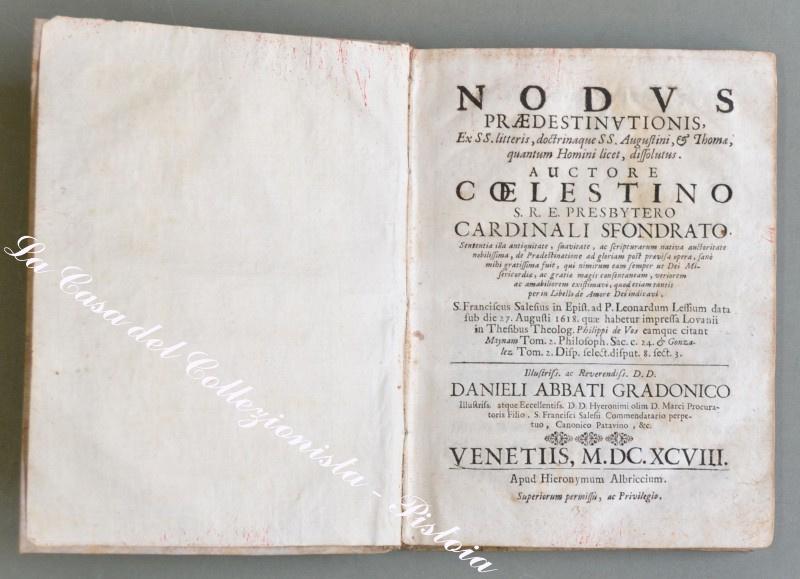 NODVS
PRÆDESTINVTIONIS,
Ex SS. litteris, doctrinaque SS. Augustini, & Thomæ,
quantum Homini licet, dissolutus.
AUCTORE
CŒLESTINO
S. R. E. PRESBYTERO
CARDINALI SFONDRATO.
Sententia illa antiquitate, suavitate, ac scripturarum nativa auctoritate
nobilissima, de Prædestinatione ad gloriam post prævisa opera, sanè
mihi gratissima fuit, qui nimirum eam semper ut Dei Mi-
sericordiæ, ac gratiæ magis consentaneam, veriorem
ac amabiliorem existimavi, quod etiam tantis
per in Libello de Amore Dei indicavi.
S. Franciscus Salesius in Epist. ad P. Leonardum Lessium data
sub die 27. Augusti 1618. quæ habetur impressa Lovanii
in Thesibus Theolog. Philippi de Vos eamque citant
Maynam Tom. 2. Philosoph. Sac. c. 24. & Gonza-
lez Tom. 2. Disp. select. disput. 8. sect. 3.
Illustriss. ac Reverendiss. D. D.
DANIELI ABBATI GRADONICO
Illustriss. atque Eccellentiss. D. D. Hyeronimi olim D. Marci Procura-
toris Filio. S. Francisci Salesii Commendatario perpe-
tuo, Canonico Patavino, &c.
VENETIIS, M.DC.XCVIII.
Apud Hieronymum Albriccium.
Superiorum permissu, ac Privilegio.
La Casa del Collezionista - Pistoia